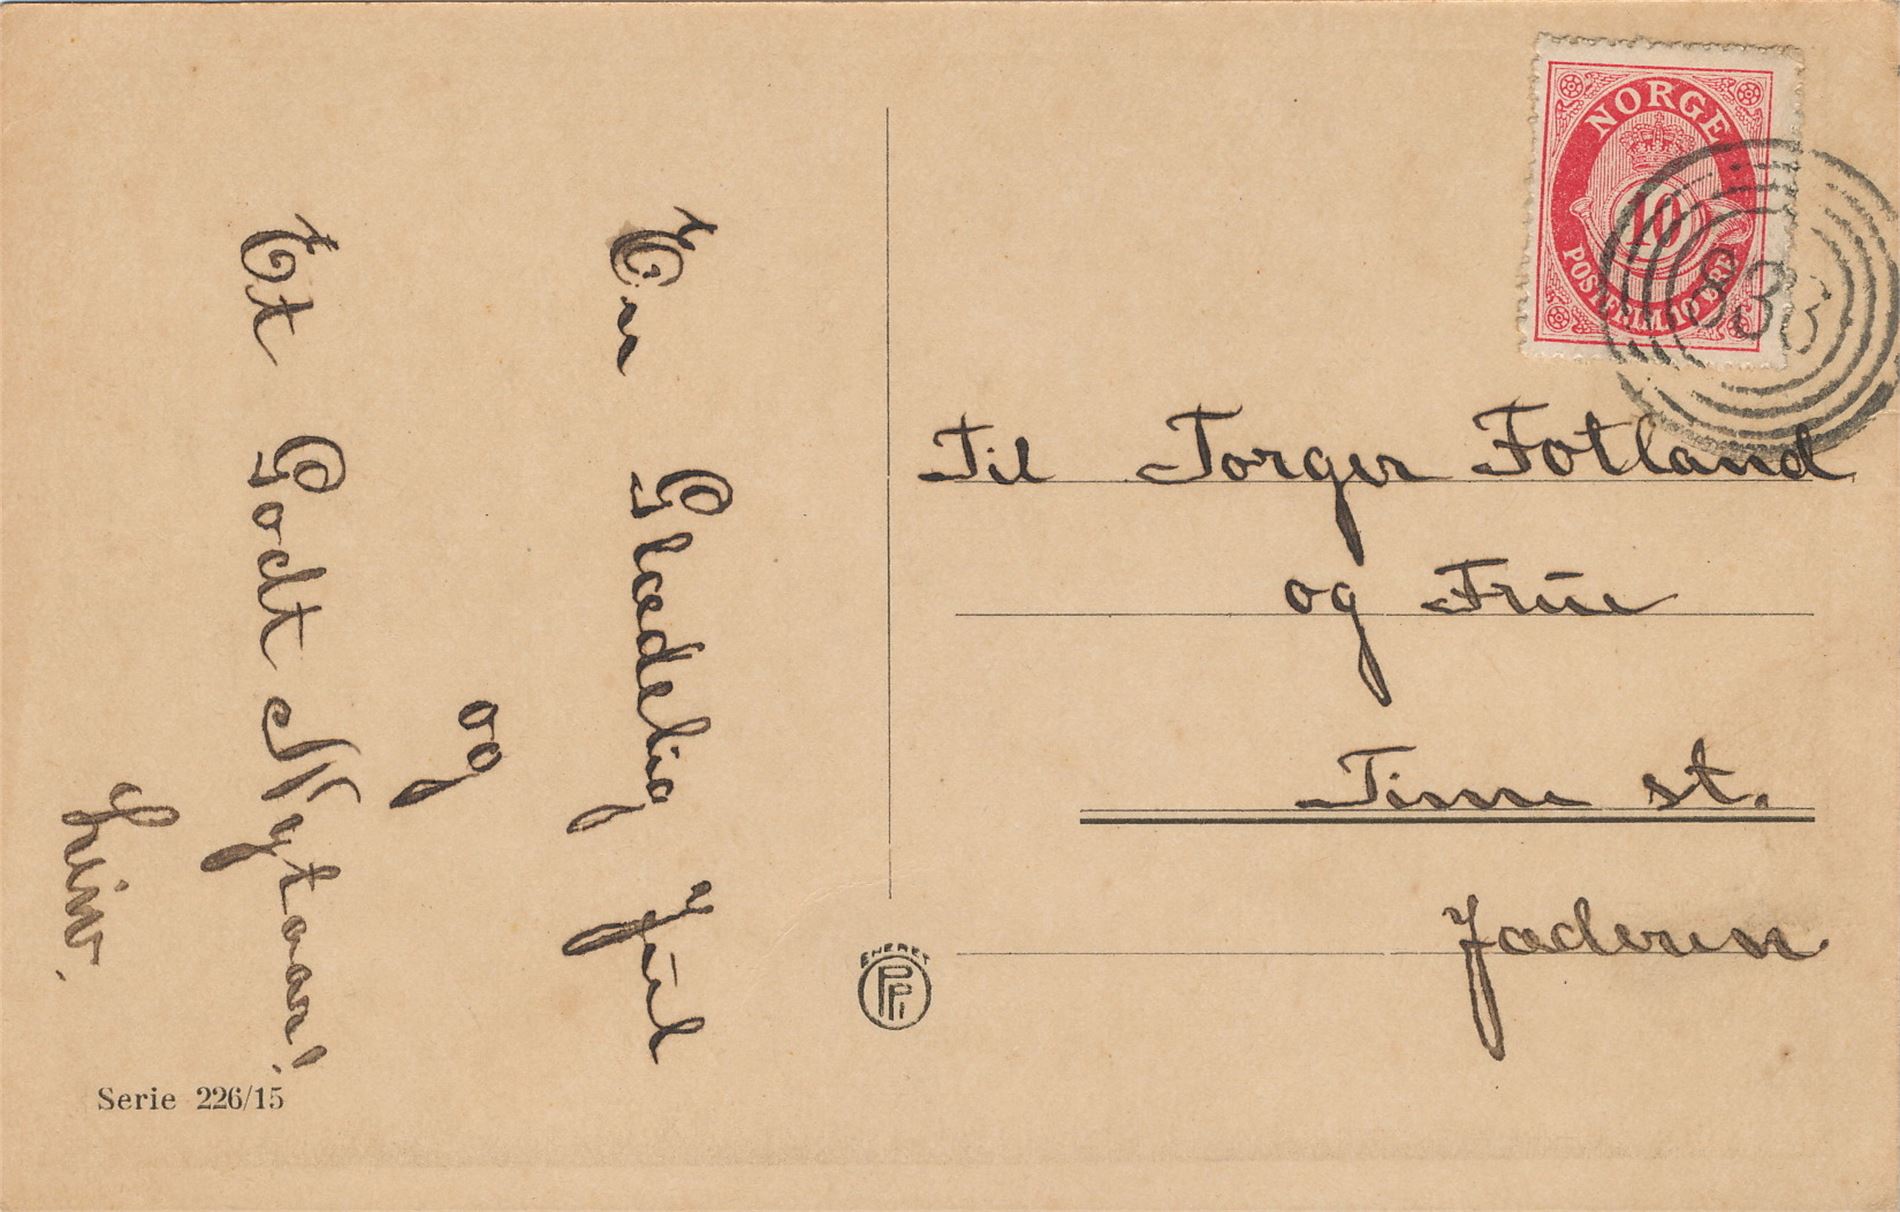 En Glædelig Jul
og
Et Godt Nytaar!
Liv.
Serie 226/15
ENERET
PPI
NORGE
10
POSTFRIM. 10 ØRE
833
Til Torger Fotland
og Frue
Time st.
Jæderen